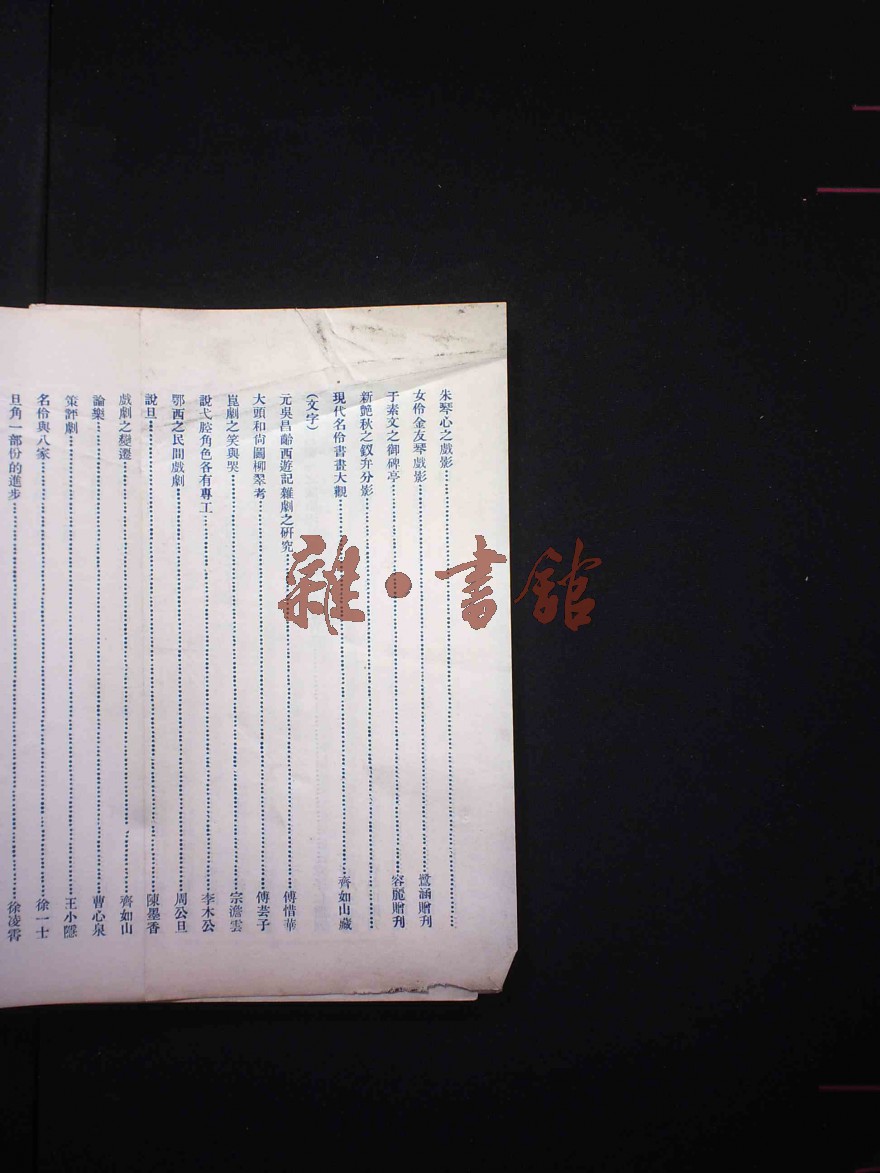 朱琴心之戲影……
女伶金友琴戲影……鷺涵贈刊
于素文之御碑亭……容麗贈刊
新艷秋之釵弁分影……
現代名伶書畫大觀……齊如山藏
(文字)
元吳昌齡西遊記雜劇之研究……傅惜華
大頭和尙鬭柳翠考……傅芸子
崑劇之笑與哭……宗澹雲
說弋腔角色各有專工……李木公
鄂西之民間戲劇……周公旦
說旦……陳墨香
戲劇之變遷……齊如山
論樂……曹心泉
策評劇……王小隱
名伶與八家……徐一士
旦角一部份的進步……徐凌霄
雜·書館